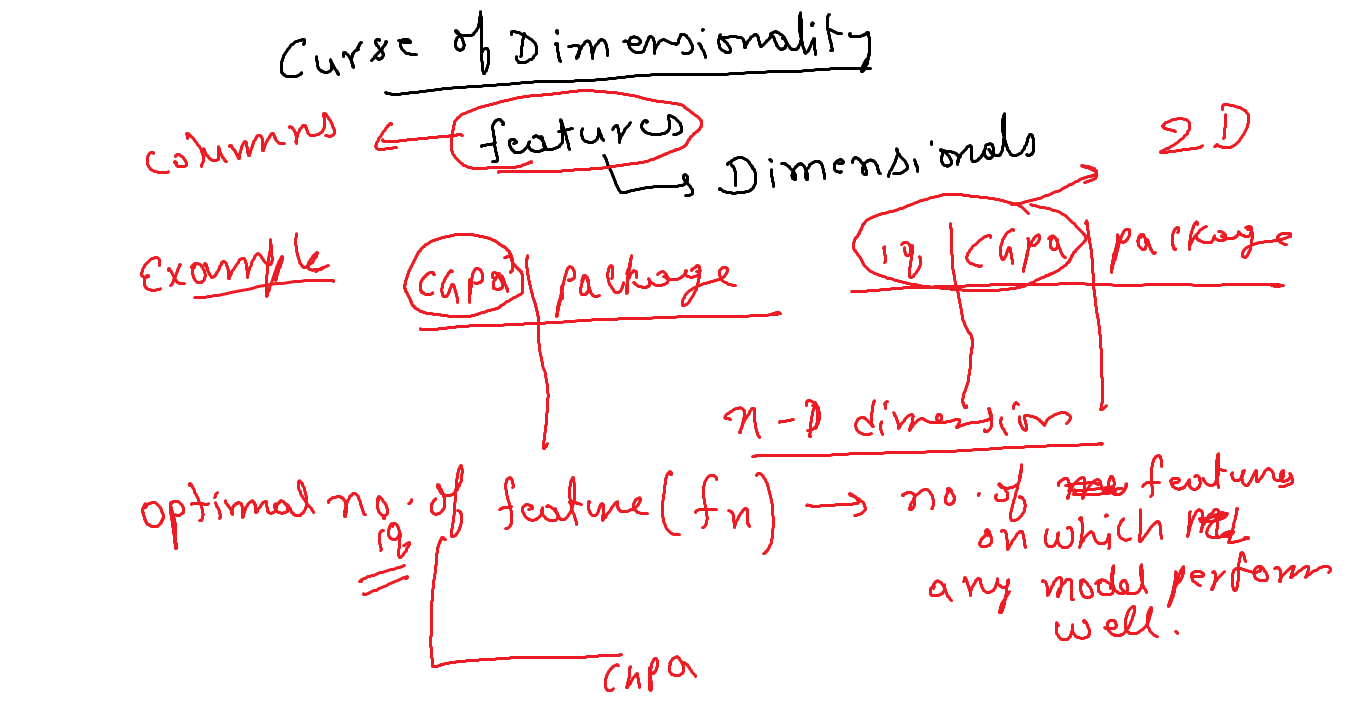 Curse of Dimensionality
columns ← features
↳ Dimensionals
2D
Example
CGPA | package
iq | CGPA | package
n-D dimension
optimal no. of feature (fn) → no. of features
on which
any model perform
well.
iq
CGPA